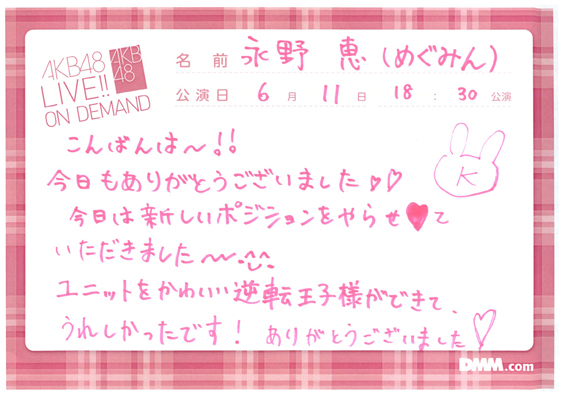 AKB48
LIVE!!
ON DEMAND
AKB
48
名前 永野 恵 (めぐみん)
公演日 6月 11日 18:30公演
こんばんは〜!!
今日もありがとうございました♡♡
K
今日は新しいポジションをやらせ♥て
いただきました〜^^
ユニットをかわいい逆転王子様ができて、
うれしかったです! ありがとうございました♡
DMM.com